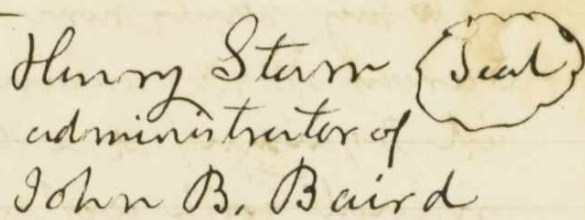 Henry Stamm Seal
administrator of
John B. Baird